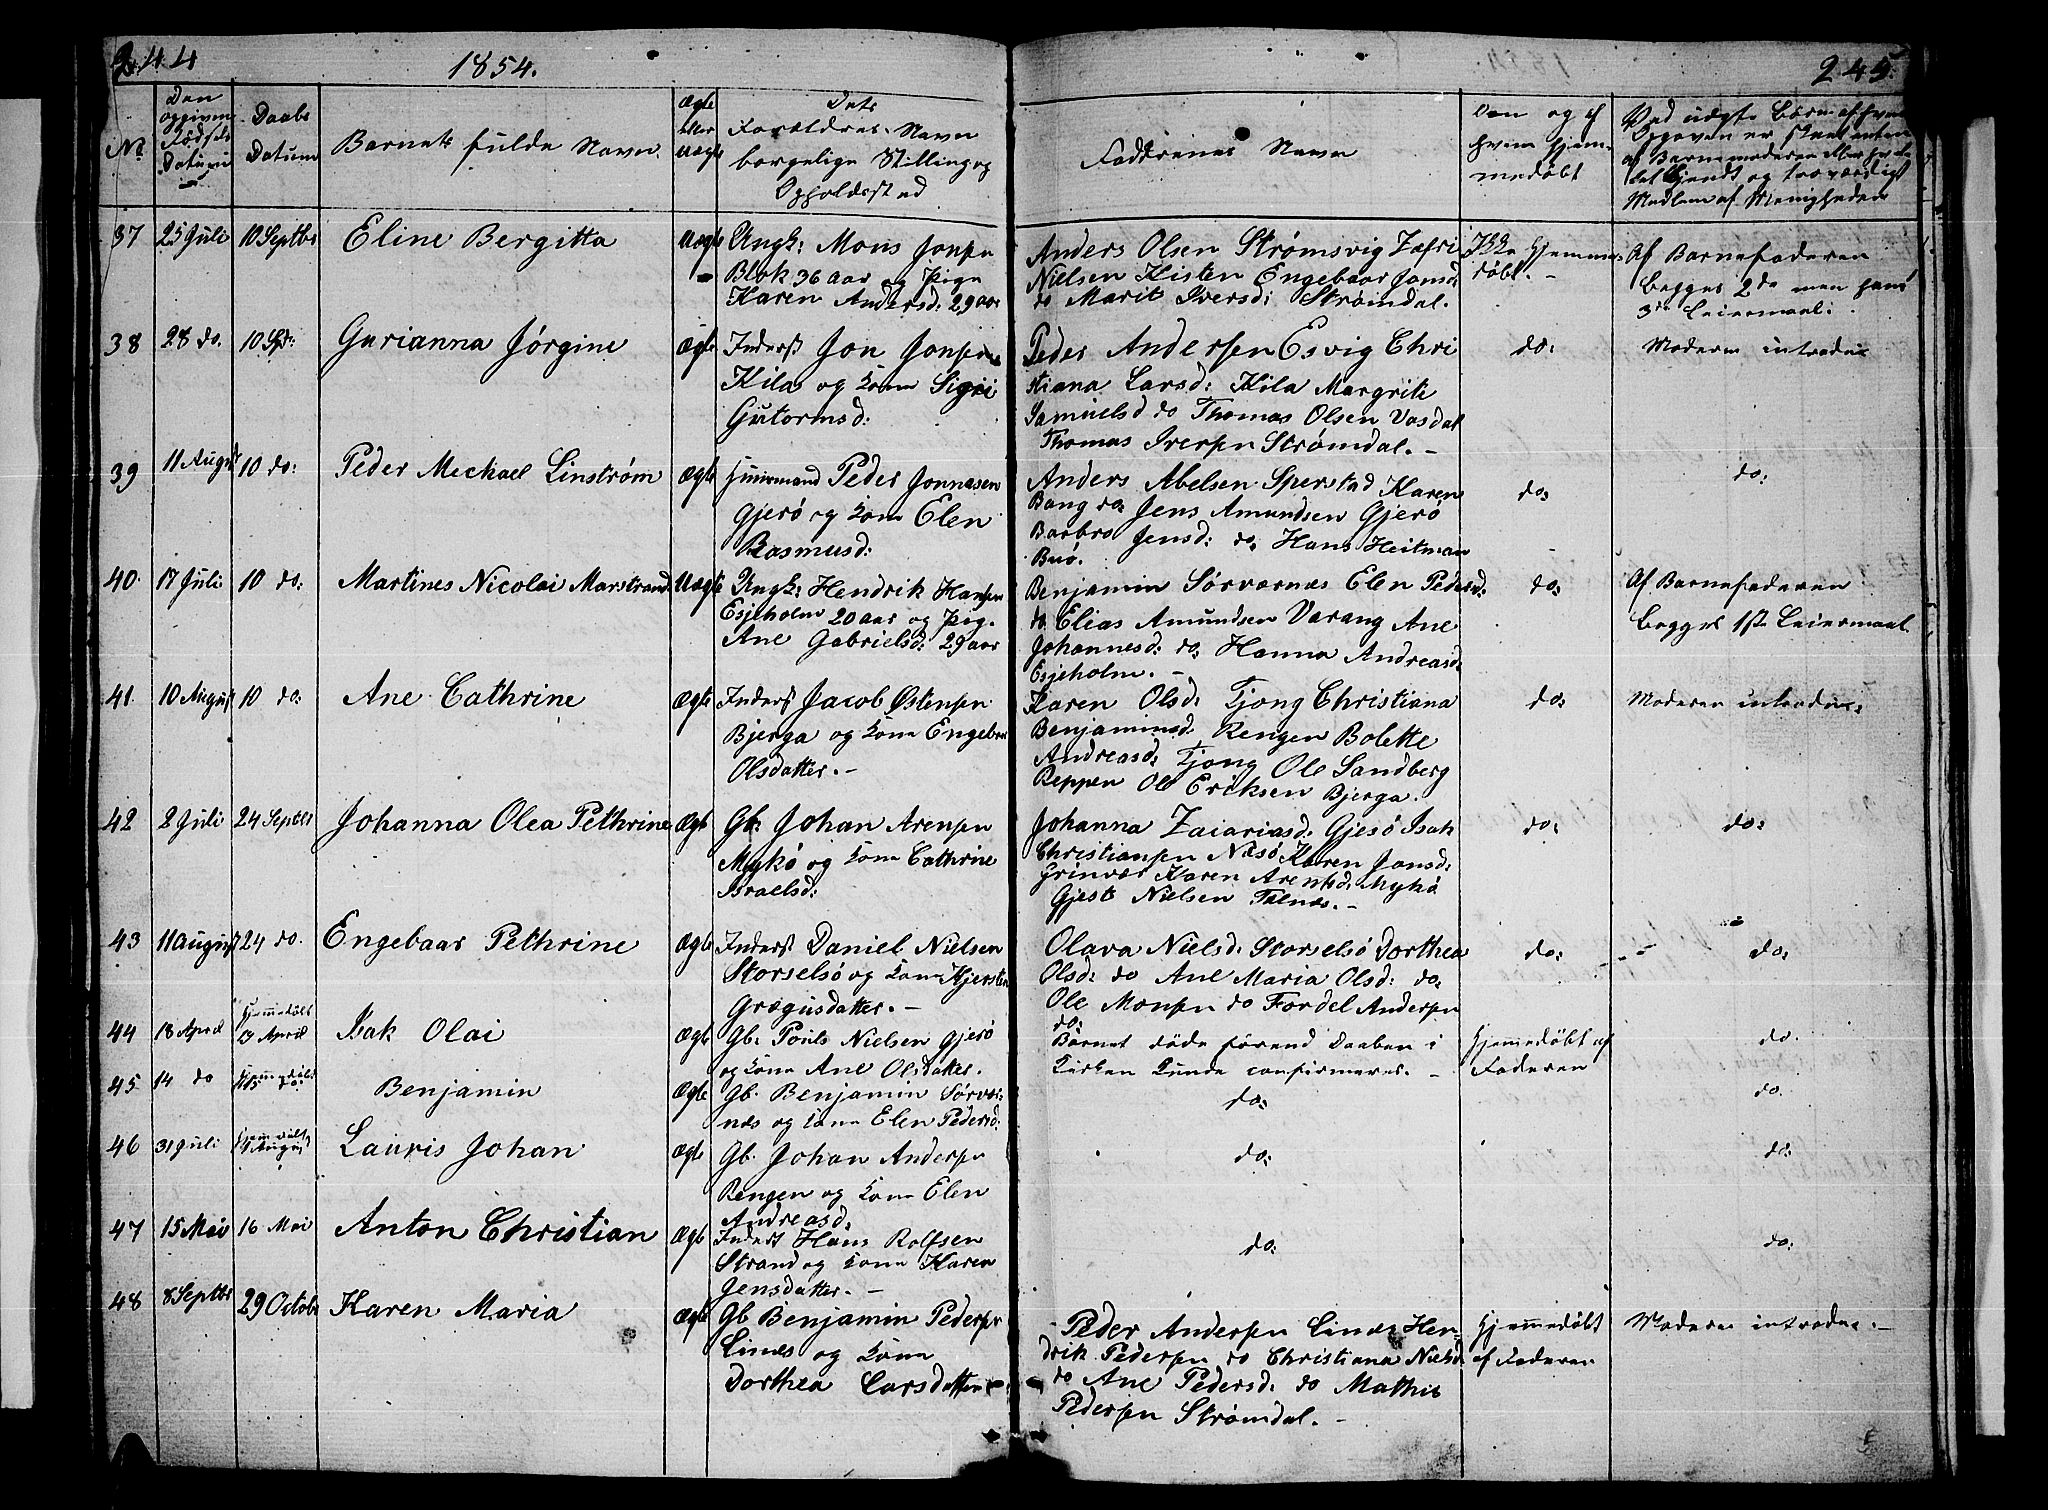 244
1854.
245.
No
Den opgivne Fødsels Datum
Daabs Datum
Barnets fulde Navn.
Ægte eller uægte
Dets Forældres Navn borgelige Stilling og Opholdssted
Faddrenes Navn
Den og af hvem hjemmedøbt
Ved uægte Børn af hvem Opgaven er skeet enten af Barnemoderen eller andet kjendt og troværdigt Medlem af Menigheden
37 25 Juli 10 Septbr Eline Bergitta Uægte Ungk: Mons Jonsen
Blok 36 aar og Pige
Karen Andersd: 29 aar
Anders Olsen Strømsvig Zefri
Nielsen Kisten Engebaar Jonsd:
do Marit Iversd: Strømdal.
Ikke hjemme-
døbt. -
Af Barnefaderen
Begges 2de men hans
3die Leiermaal.
38 28 do. 10 Spt: Gurianna Jørgine Ægte Inderst Jon Jonsen
Kila og Kone Sigri
Gutormsd:
Peder Andersen Esvig Chri
stiana Larsd: Kila Margrite
Samuelsd do Thomas Olsen Vasdal
Thomas Iversen Strømdal. -
do:
Moderen introdu:
39 11 August 10 do: Peder Mechael Linstrøm Ægte Huusmand Peder Jonnasen
Gjerö og Kone Elen
Rasmusd:
Anders Abelsen Sperstad Karen
Bang do: Jens Amundsen Gjerö
Barbro Jensd: do. Hans Heitman
Buö.
do:
do:
40. 17 Juli 10 do: Martines Nicolai Marstrand Uægte Ungk: Hendrik Hansen
Esjeholm 20 aar og Pig.
Ane Gabrielsd: 29 aar
Benjamin Sørværnes Elen Pedersd:
do Elias Amundsen Varang Ane
Johannesd: do: Hanna Andreasd:
Esjeholm. -
do:
Af Barnefaderen
Begges 1ste Leiermaal
41. 10 August 10 do: Ane Cathrine Ægte Inderst Jacob Østensen
Bjerga og Kone Engebor
Olsdatter. -
Karen Olsd: Tjong Christiana
Benjaminsd: Rengen Bolette
Andreasd: Tjong Ole Sandberg
Reppen Ole Eriksen Bjerga.
do:
Moderen introdu:
42 2 Juli 24 Septbr Johanna Olea Pethrine Ægte Gb: Johan Arensen
Mykö og Kone Cathrine
Israelsd:
Johanna Zaiariasd: Gjesö Isak
Christiansen Næsö Karen Jonsd:
Grinvær Karen Arentsd: Mykö
Gjest Nielsen Telnæs. -
do:
do:
43 11 August 24 do. Engebaar Pethrine Ægte Inderst Daniel Nielsen
Storselsö og Kone Kjersten
Grægusdatter. -
Olava Nielsd: Storselsö Dorthea
Olsd: do Ane Maria Olsd: do.
Ole Monsen do Fordel Andersen
do:
do:
do:
44 18 April Hjemmedöbt 29 April Isak Olai Ægte Gb: Pouls Nielsen Gjerö
og Kone Ane Olsdatter.
Barnet døde førend Daaben i
Kirken kunde confirmeres. -
Hjemmedøbt af
Faderen
do.
45 14 do Hjemmedøbt do: Benjamin Ægte Gb. Benjamin Sørvær-
næs og Kone Elen Pedersd:
do:
do.
46 31 Juli Hjemmedøbt August Lauris Johan Ægte Gb. Johan Andersen
Rengen og Kone Elen
Andreasd.
do:
do:
47 15 Mai 16 Mai Anton Christian Ægte Inderst Hans Rolfsen
Strand og Kone Karen
Jensdatter. -
do:
do:
48 8 Septbr 29 Octobr Karen Maria Ægte Gb Benjamin Pedersen
Linæs og Kone
Dorthea Larsdatter
Peder Andersen Linæs Hen-
drik Pedersen do Christiana Nielsd
do Ane Pedersd: do Mathis
Pedersen Strømdal. -
Hjemmedøbt
af Faderen
Moderen introdu: -